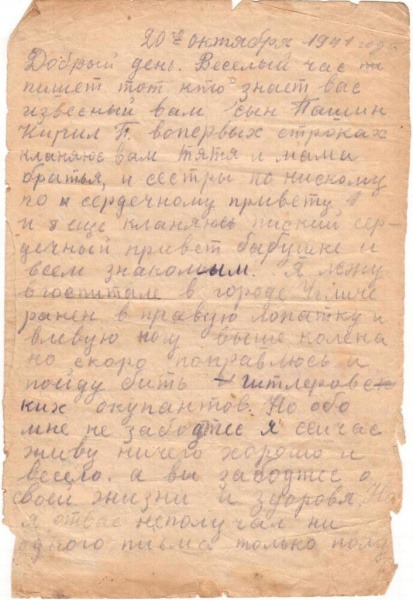 20го октября 1941 года
Добрый день. Веселый час
пишет тот кто знает вас
извесный вам сын Пашин
Кирил П. вопервых строках
кланяюс вам тятя и мама
братья, и сестры по нискому
по сердечному привету
и я еще кланяюсь ниский сер-
дечный привет бабушке и
всем знакомым. Я лежу
вгоспитале в городе Угличе
ранен в правую лопатку и
влевую ногу выше колена
но скоро поправлюсь и
пойду бить гитлеровс
ких окупантов. Но обо
мне не заботтес я сеичас
живу ничего хорошо и
весело. а вы заботтес о
своей жизни и здоровя. Но
я отвас неполучал ни
одного писма только полу